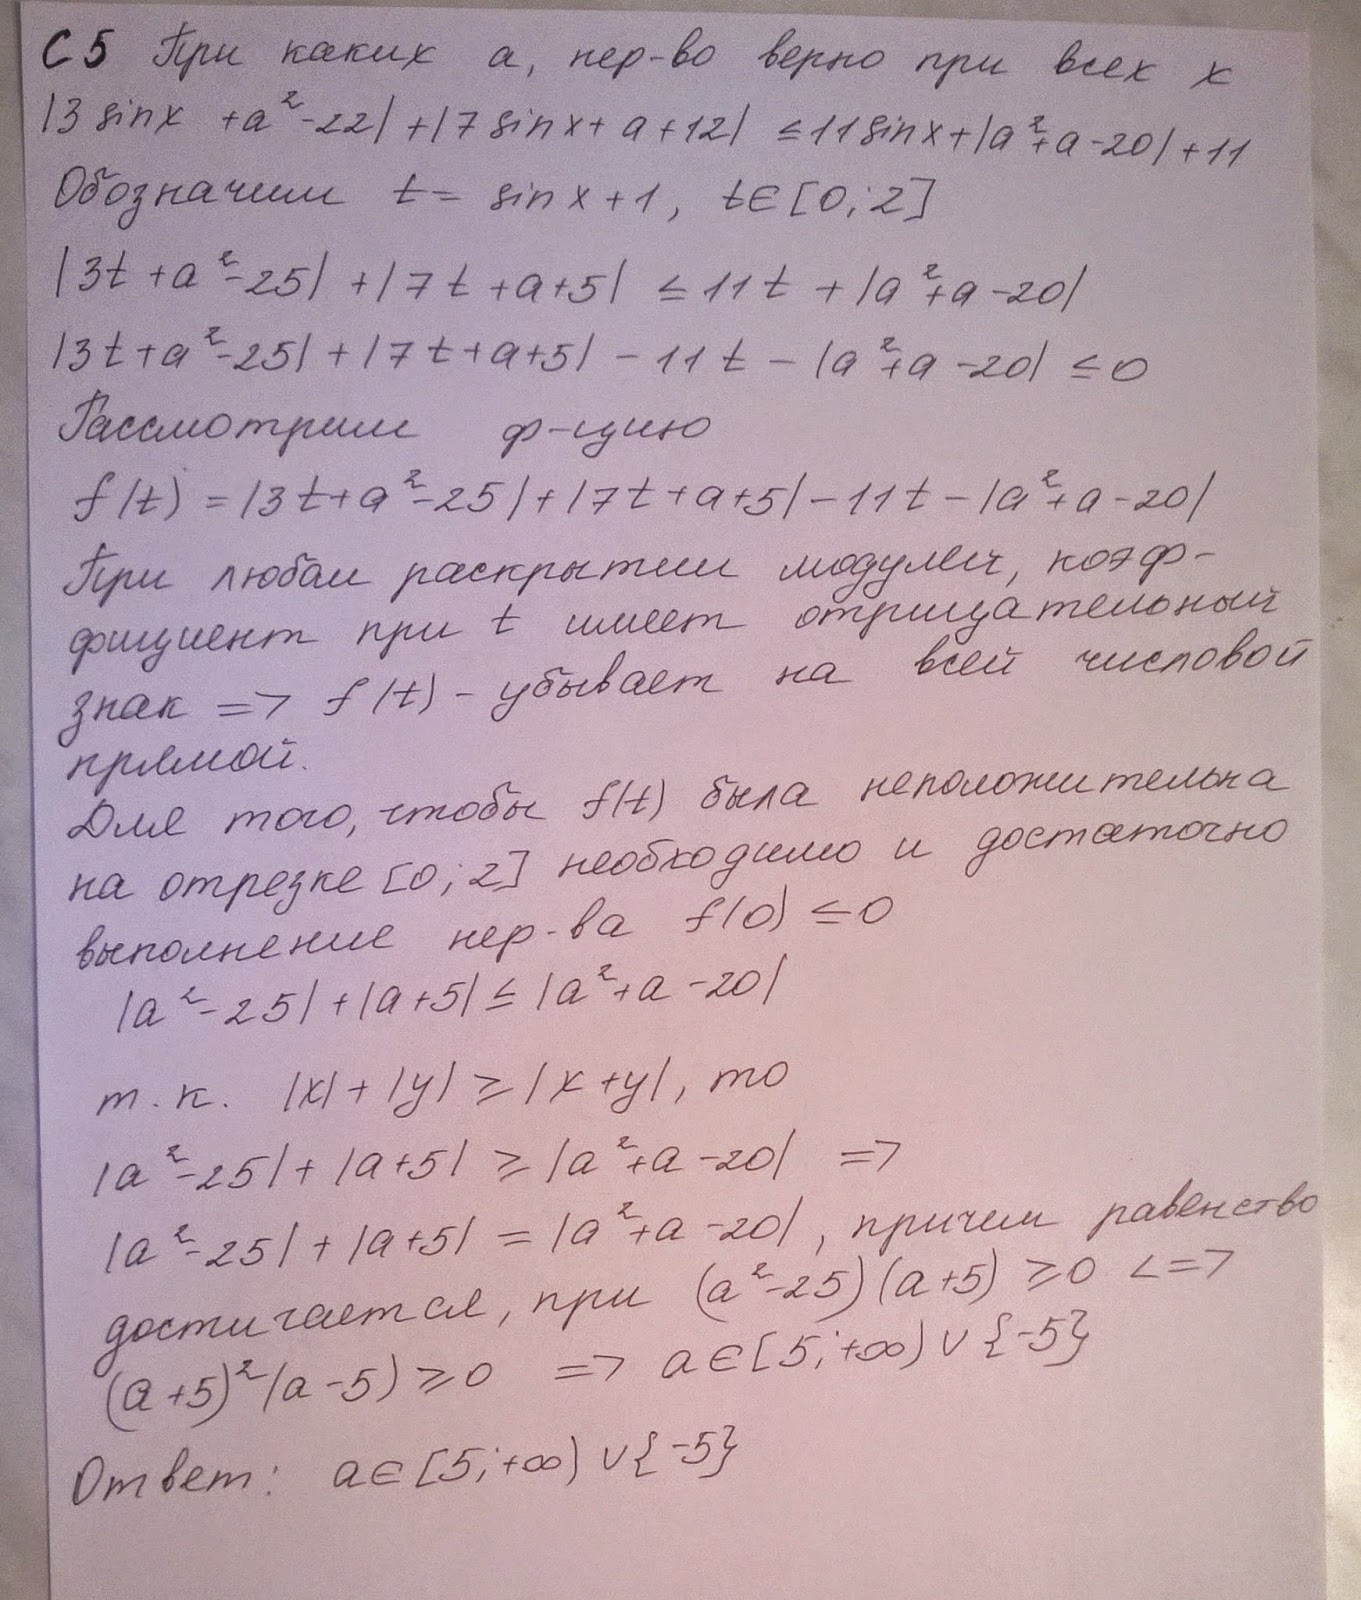 С5 При каких a, нер-во верно при всех x
|3 sinx + a² - 22| + |7 sinx + a + 12| ≤ 11 sinx + |a² + a - 20| + 11
Обозначим t = sin x + 1, t ∈ [0; 2]
|3t + a² - 25| + |7t + a + 5| ≤ 11t + |a² + a - 20|
|3t + a² - 25| + |7t + a + 5| - 11t - |a² + a - 20| ≤ 0
Рассмотрим ф-цию
f(t) = |3t + a² - 25| + |7t + a + 5| - 11t - |a² + a - 20|
При любом раскрытии модулей, коэф-
фициент при t имеет отрицательный
знак => f(t) - убывает на всей числовой
прямой.
Для того, чтобы f(t) была неположительна
на отрезке [0; 2] необходимо и достаточно
выполнение нер-ва f(0) ≤ 0
|a² - 25| + |a + 5| ≤ |a² + a - 20|
т.к. |x| + |y| ≥ |x + y|, то
|a² - 25| + |a + 5| ≥ |a² + a - 20| =>
|a² - 25| + |a + 5| = |a² + a - 20|, причем равенство
достигается, при (a² - 25)(a + 5) ≥ 0 <=>
(a + 5)² (a - 5) ≥ 0 => a ∈ [5; +∞) ∪ {-5}
Ответ: a ∈ [5; +∞) ∪ {-5}